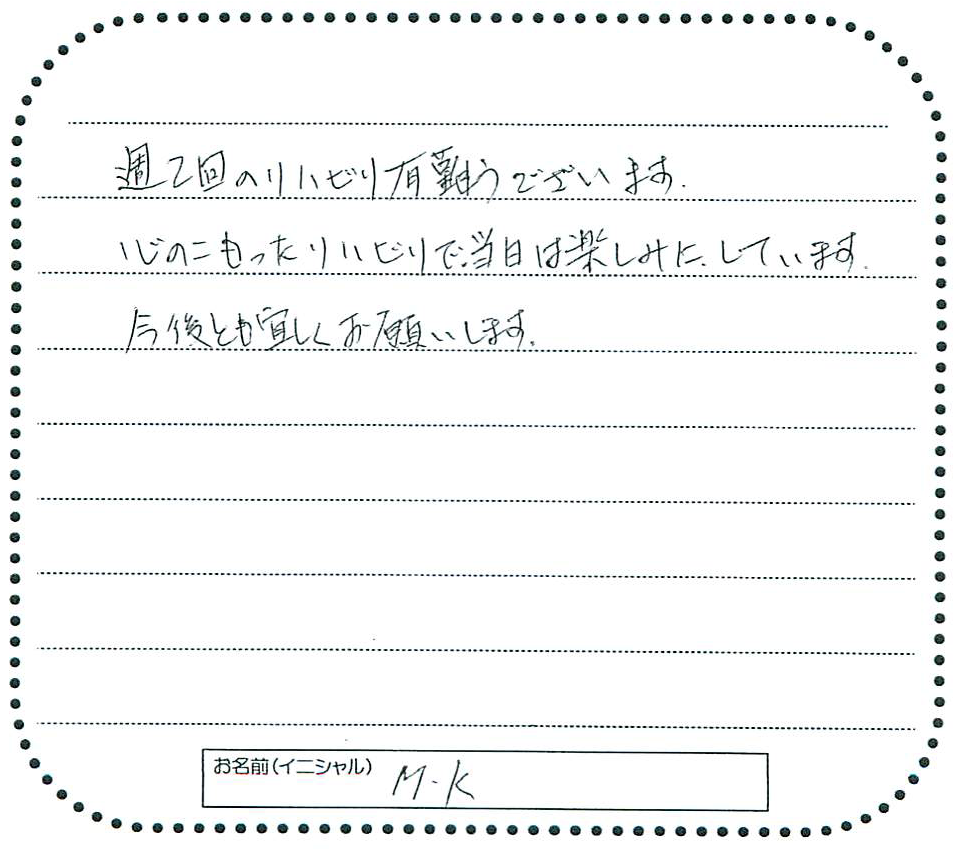 週2回のリハビリ有難うございます.
心のこもったリハビリで、当日は楽しみに、しています.
今後とも宜しくお願いします.
お名前(イニシャル) M-K